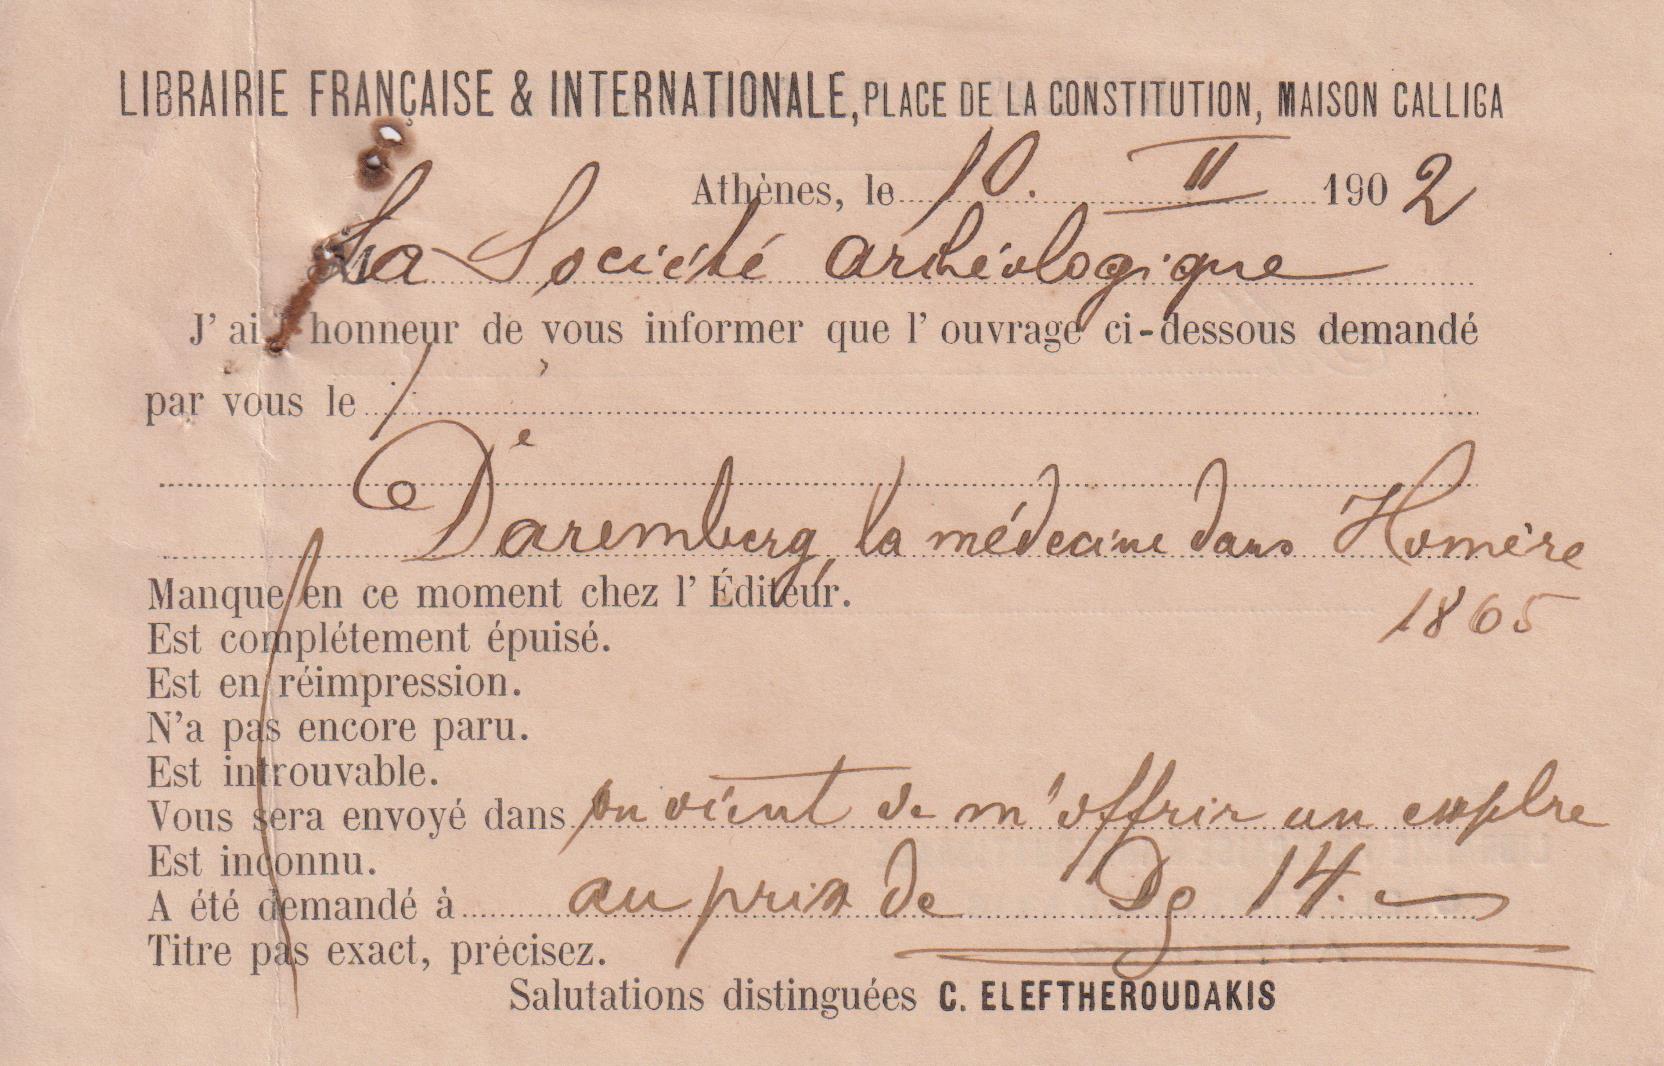 LIBRAIRIE FRANÇAISE & INTERNATIONALE, PLACE DE LA CONSTITUTION, MAISON CALLIGA
Athènes, le 10. II 1902
La Société archéologique
J' ai l' honneur de vous informer que l' ouvrage ci-dessous demandé
par vous le
Daremberg, la médecine dans Homère
1865
Manque en ce moment chez l' Éditeur.
Est complétement épuisé.
Est en réimpression.
N'a pas encore paru.
Est introuvable.
Vous sera envoyé dans on vient de m'offrir un explre
Est inconnu.
A été demandé à au prix de Dg 14.—
Titre pas exact, précisez.
Salutations distinguées C. ELEFTHEROUDAKIS